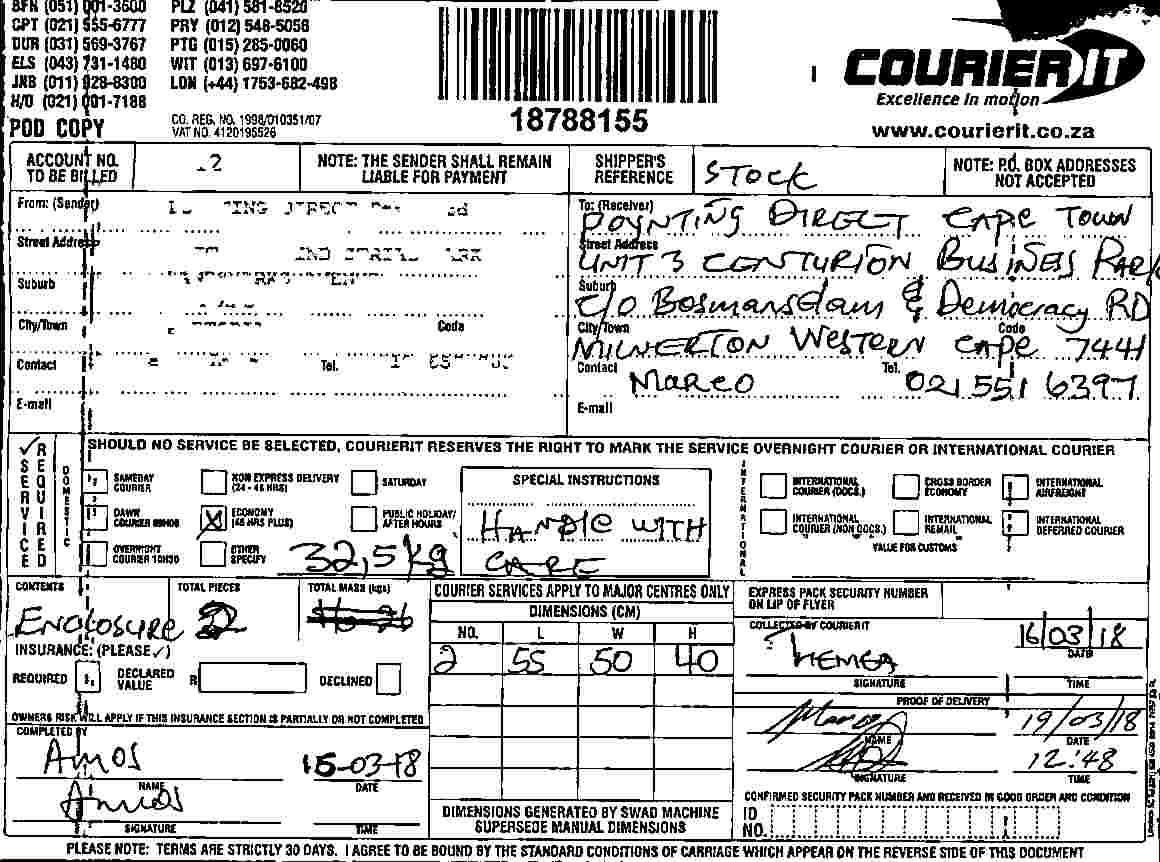 BFN (051) 001-3600 PLZ (041) 581-8520
CPT (021) 555-6777 PRY (012) 548-5056
DUR (031) 569-3767 PTG (015) 285-0060
ELS (043) 731-1480 WIT (013) 697-6100
JNB (011) 028-8300 LON (+44) 1753-682-498
H/O (021) 001-7188
POD COPY
CO. REG. NO. 1998/010351/07
VAT NO. 4120195526
18788155
COURIER IT
Excellence in motion
www.courierit.co.za
ACCOUNT NO. TO BE BILLED
NOTE: THE SENDER SHALL REMAIN LIABLE FOR PAYMENT
SHIPPER'S REFERENCE STOCK
NOTE: P.O. BOX ADDRESSES NOT ACCEPTED
From: (Sender)
Street Address
Suburb
City/Town Code
Contact Tel.
E-mail
To: (Receiver) POYNTING DIRECT CAPE TOWN
Street Address UNIT 3 CENTURION BUSINESS PARK
Suburb C/O Bosmansdam & Democracy RD
City/Town MILNERTON WESTERN CAPE Code 7441
Contact MARCO Tel. 021 551 6397
E-mail
✓ SERVICE REQUIRED
SHOULD NO SERVICE BE SELECTED, COURIERIT RESERVES THE RIGHT TO MARK THE SERVICE OVERNIGHT COURIER OR INTERNATIONAL COURIER
DOMESTIC
SAMEDAY COURIER
NON EXPRESS DELIVERY (24 - 48 HRS)
SATURDAY
DAWN COURIER
ECONOMY (48 HRS PLUS)
PUBLIC HOLIDAY/ AFTER HOURS
OVERNIGHT COURIER 10H30
OTHER SPECIFY
32,5kg
SPECIAL INSTRUCTIONS
HANDLE WITH
CARE
INTERNATIONAL
INTERNATIONAL COURIER (DOCS.)
CROSS BORDER ECONOMY
INTERNATIONAL AIRFREIGHT
INTERNATIONAL COURIER (NON DOCS.)
INTERNATIONAL REMAIL
INTERNATIONAL DEFERRED COURIER
VALUE FOR CUSTOMS
CONTENTS
ENCLOSURE
TOTAL PIECES
2
TOTAL MASS (kgs)
INSURANCE: (PLEASE ✓)
REQUIRED
DECLARED VALUE R
DECLINED
OWNERS RISK WILL APPLY IF THIS INSURANCE SECTION IS PARTIALLY OR NOT COMPLETED
COMPLETED BY
AMOS 15-03-18
NAME DATE
AMOS
SIGNATURE TIME
COURIER SERVICES APPLY TO MAJOR CENTRES ONLY
DIMENSIONS (CM)
NO. L W H
2 55 50 40
DIMENSIONS GENERATED BY SWAD MACHINE
SUPERSEDE MANUAL DIMENSIONS
EXPRESS PACK SECURITY NUMBER
ON LIP OF FLYER
COLLECTED BY COURIERIT
16/03/18
DATE
SIGNATURE TIME
PROOF OF DELIVERY
19/03/18
NAME DATE
12:48
SIGNATURE TIME
CONFIRMED SECURITY PACK NUMBER AND RECEIVED IN GOOD ORDER AND CONDITION
ID NO.
PLEASE NOTE: TERMS ARE STRICTLY 30 DAYS. I AGREE TO BE BOUND BY THE STANDARD CONDITIONS OF CARRIAGE WHICH APPEAR ON THE REVERSE SIDE OF THIS DOCUMENT